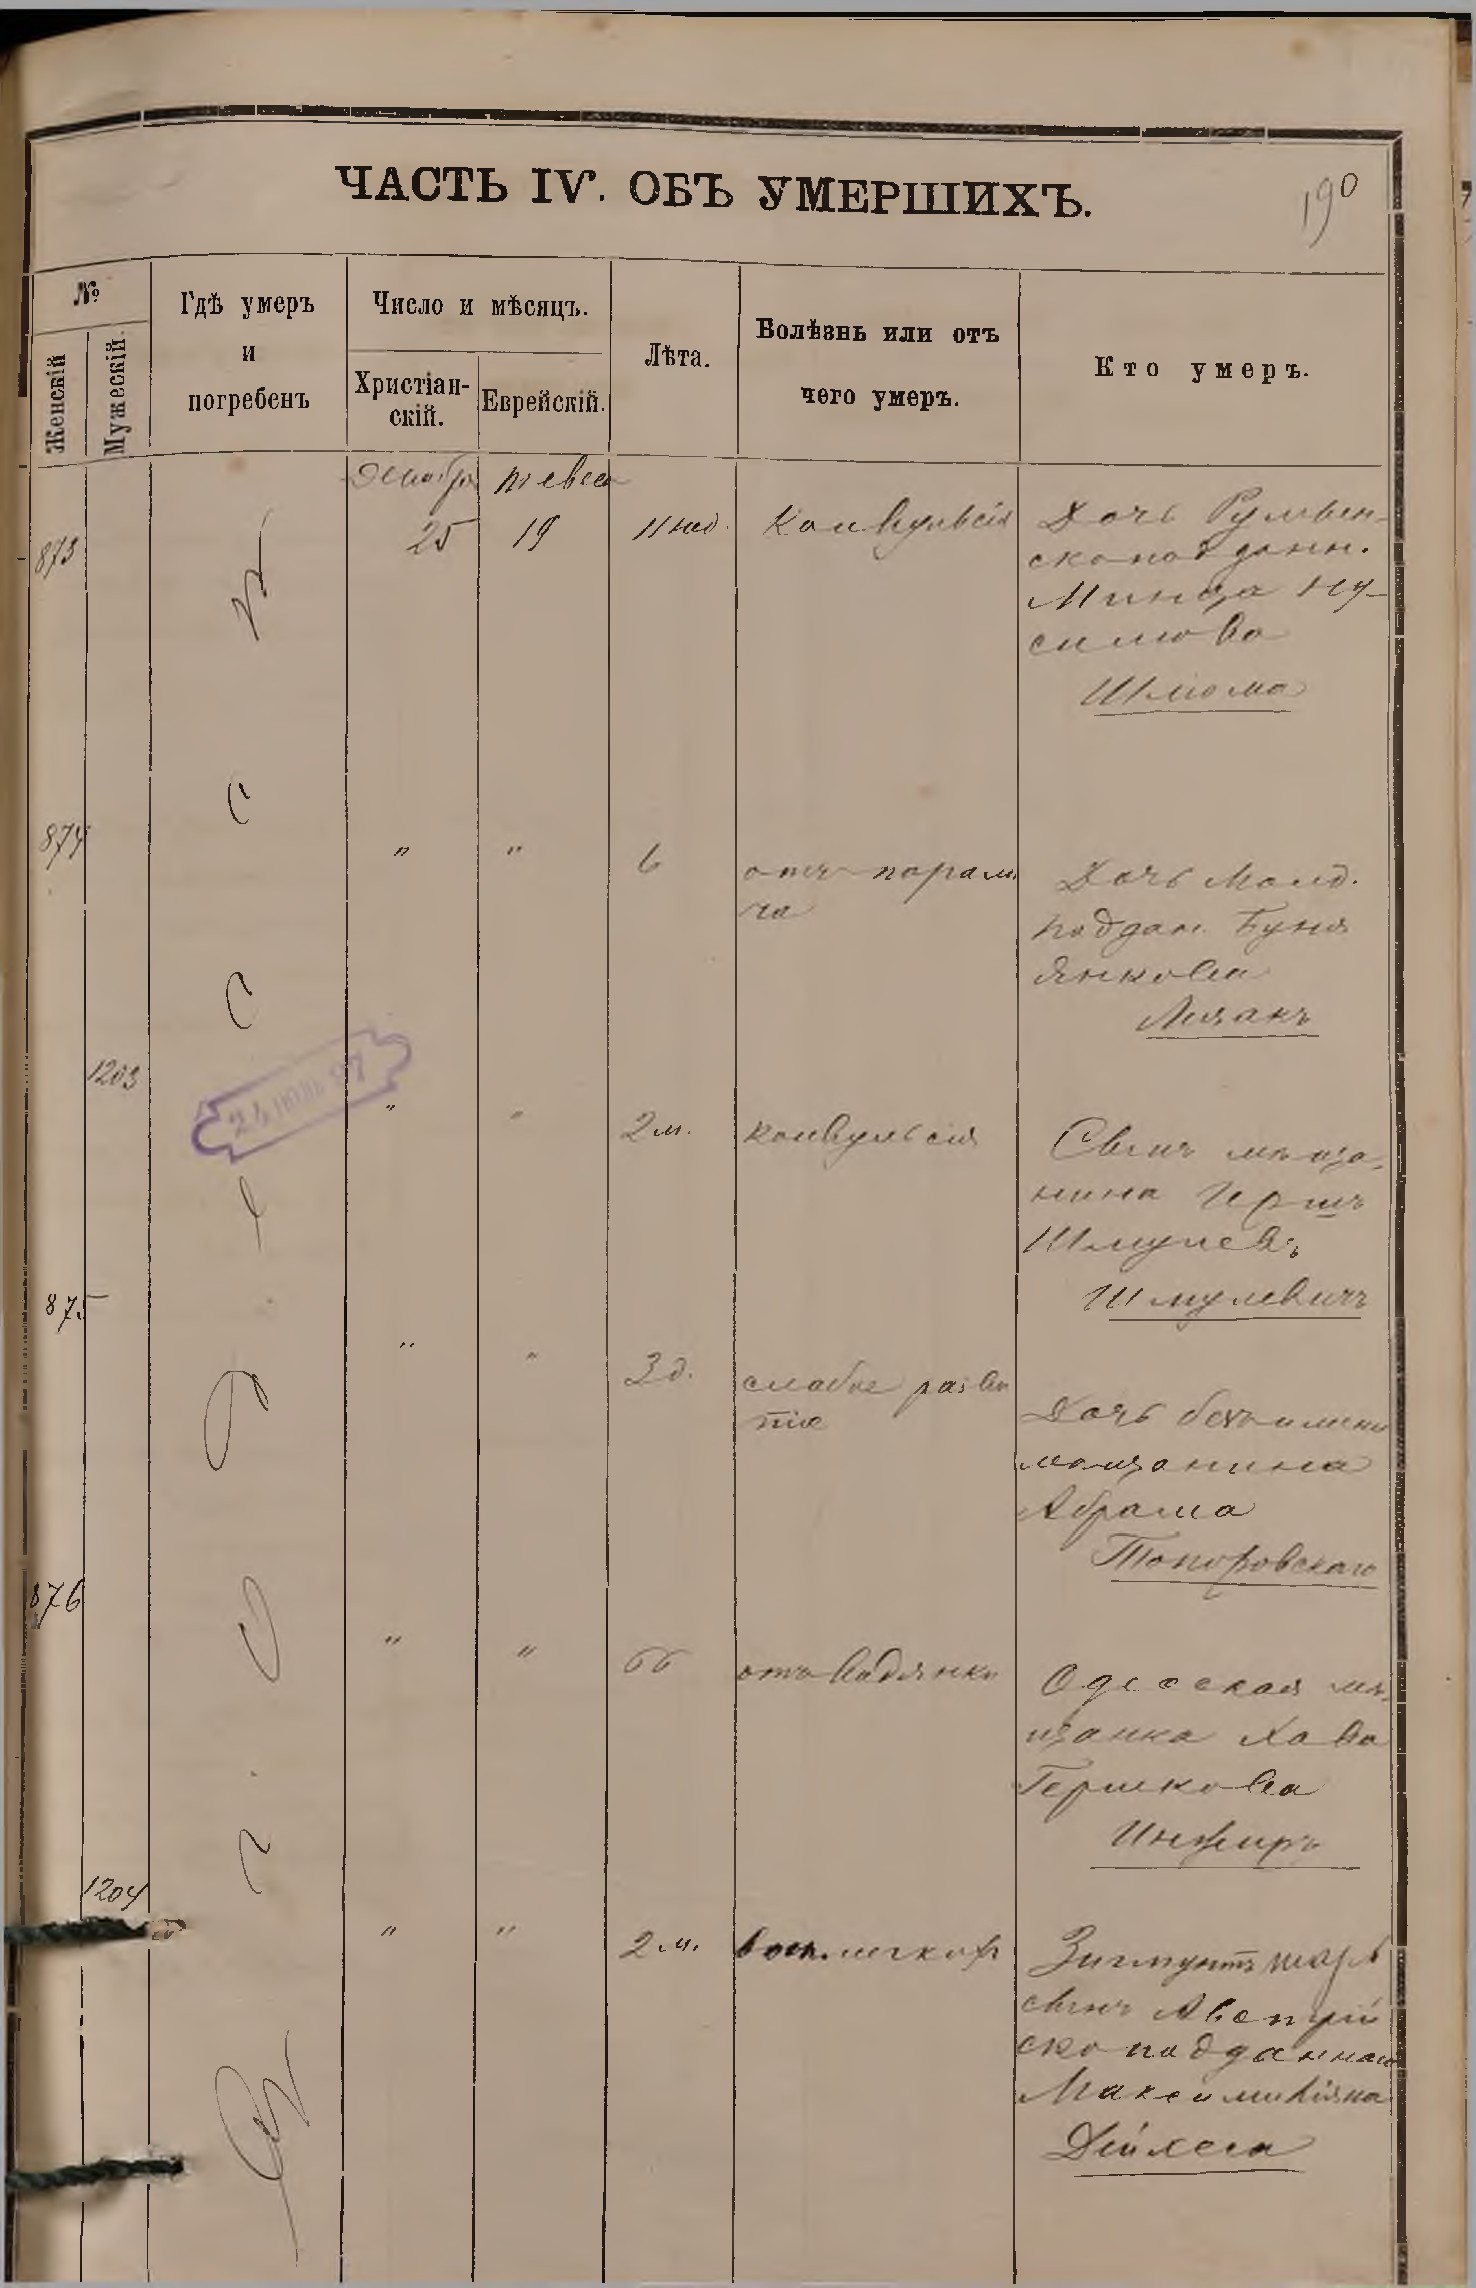 ЧАСТЬ IV. ОБЪ УМЕРШИХЪ.
190
№
Женскій
Мужескій.
Гдѣ умеръ
и
погребенъ
Число и мѣсяцъ.
Христіан-
скій.
Еврейскій.
Лѣта.
Болѣзнь или отъ
чего умеръ.
Кто умеръ.
Въ г. Одессѣ
Декабря тевеса
873
25 19 11 нед. Конвульсія
Дочь Румын-
скоподданн.
Минца Ну-
симова
Шлиома
874
" " 6 отъ парали
ча
Дочь Молд.
поддан. Буня
Янкова
Лизакъ
24 97
1203
" " 2 м. конвульсія
Сынъ мѣща-
нина Иршъ
Шмулевъ
Шмулевичъ
875
" " 3 д. слабое разви
тіе
Дочь безъимени
мѣщанина
Абрама
Топоровскаго
876
" " 66 отъ водянки
Одесская мѣ-
щанка Хава
Гершкова
Инжиръ
1204
" " 2 м. восп. легкихъ
Зигмунтъ Шарль
сынъ Австрій
скоподданнаго
Максимиліана
Дейхеса